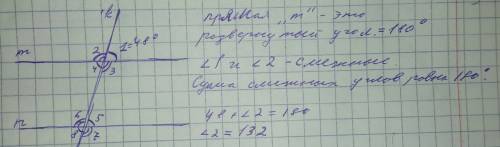 k
m
2
1=48°
4
3
n
6
5
8
7
прямая „m" - это
развернутый угол = 180°
∠1 и ∠2 - смежные.
Сумма смежных углов равна 180°.
48 + ∠2 = 180
∠2 = 132